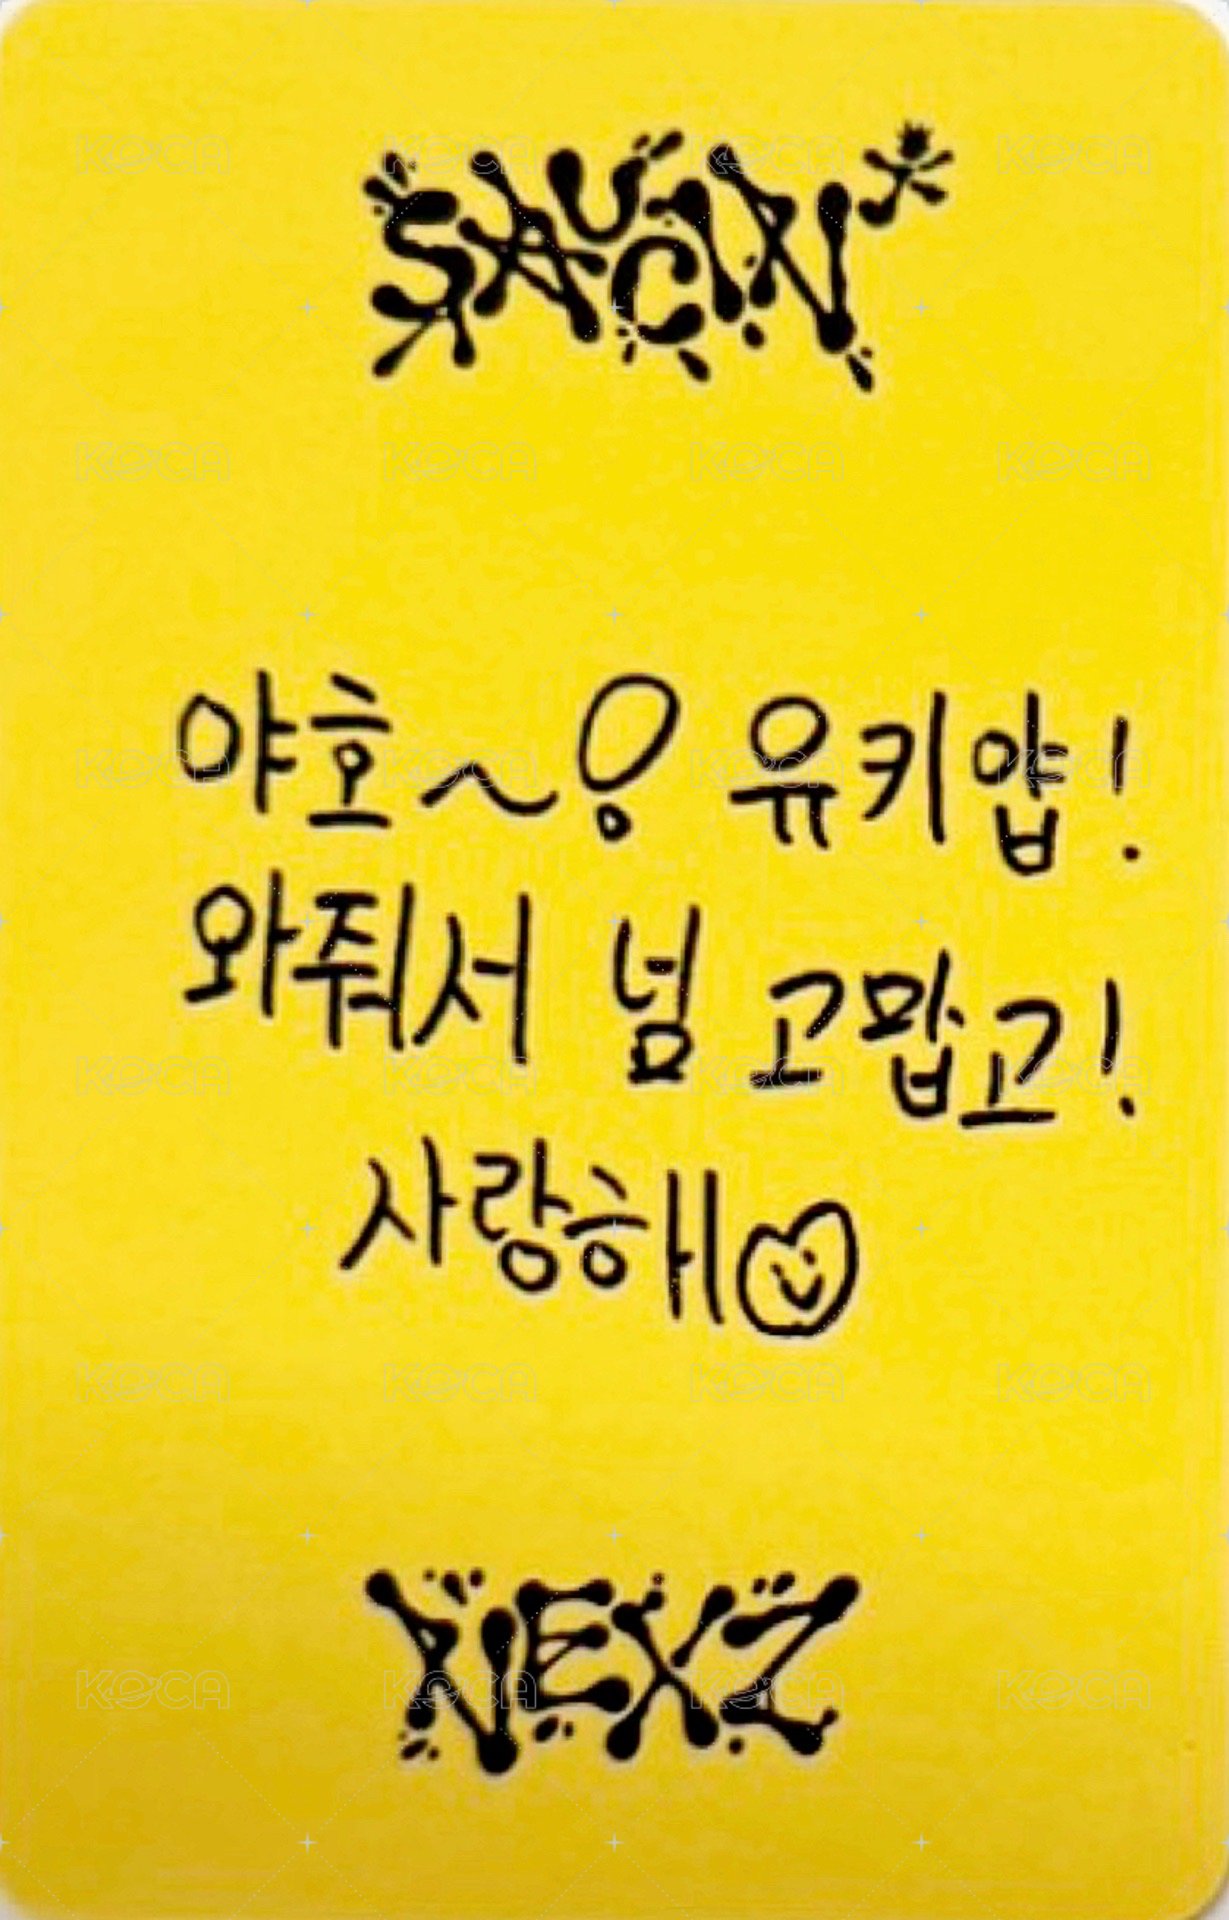 SAUCIN'
야호~! 유키얍!
와줘서 넘 고맙고!
사랑해
NEXZ
KOCA